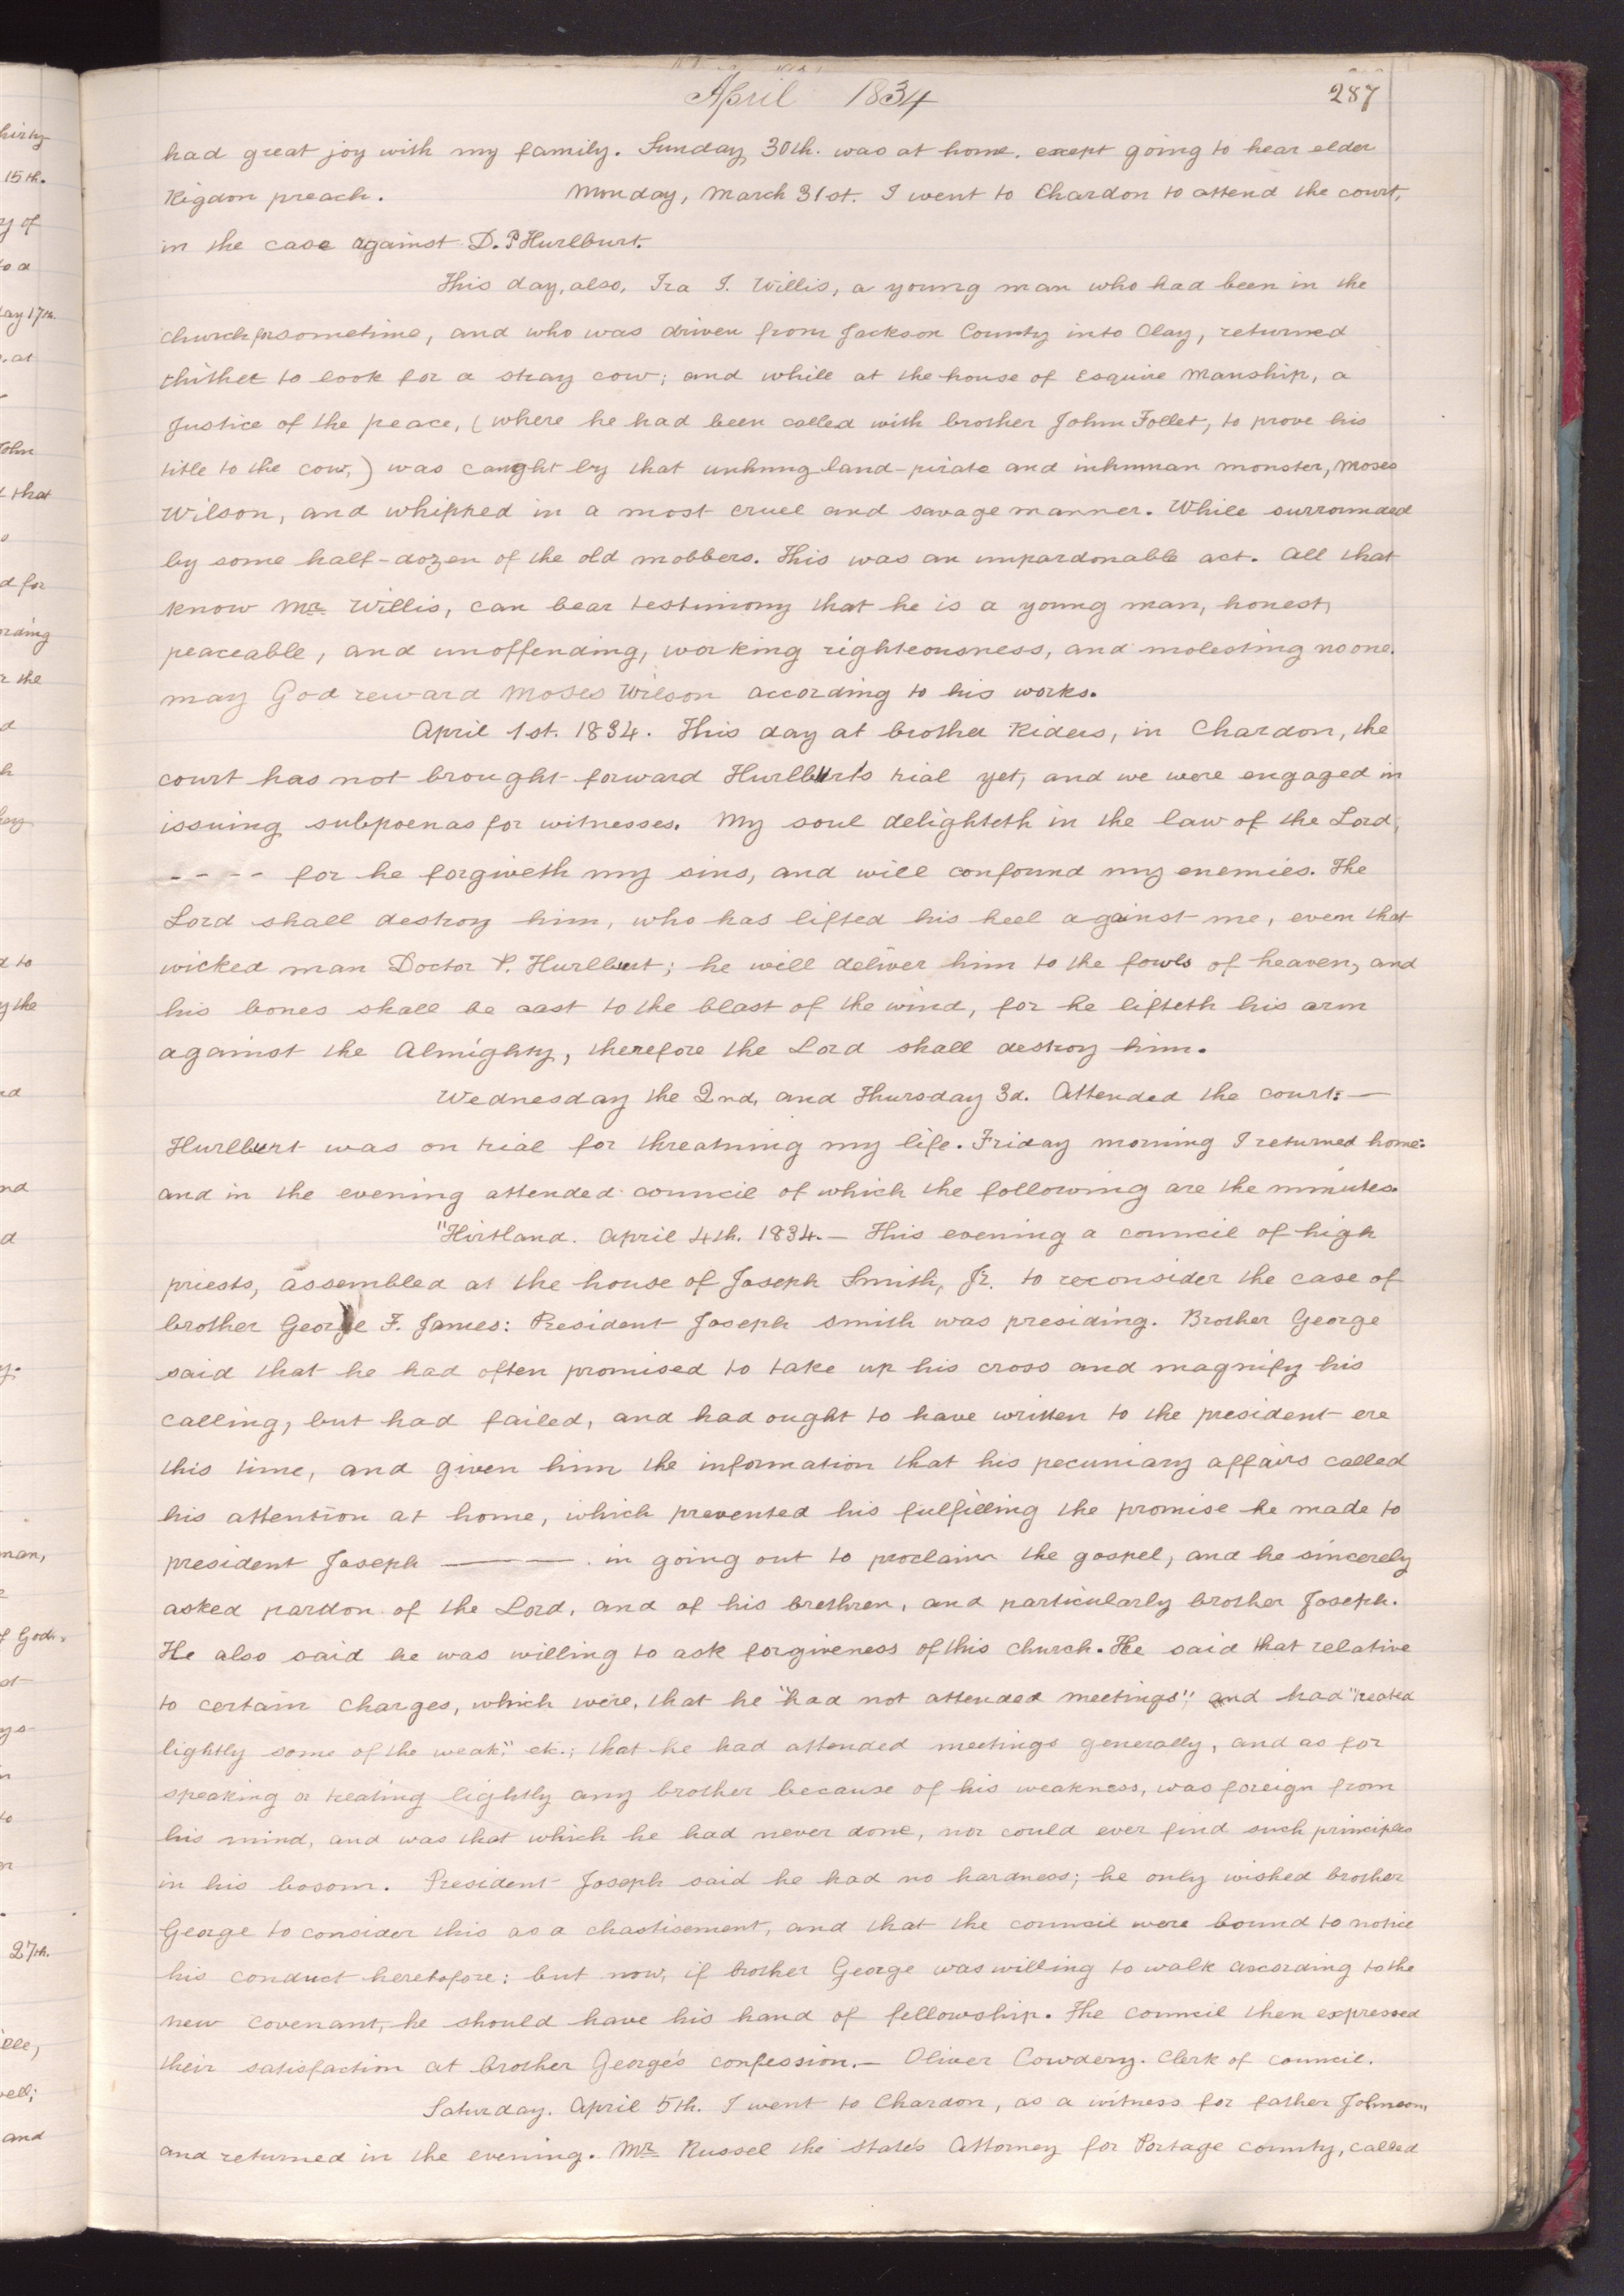 April 1834
287
had great joy with my family. Sunday 30th. was at home. except going to hear elder
Rigdon preach. Monday, March 31st. I went to Chardon to attend the court,
in the case against D. P Hurlburt.
This day, also, Ira I. Willis, a young man who had been in the
church for sometime, and who was driven from Jackson County into Clay, returned
thither to look for a stray cow; and while at the house of Esquire Manship, a
Justice of the peace, (where he had been called with brother John Follet, to prove his
title to the cow,) was caught by that unhung land-pirate and inhuman monster, Moses
Wilson, and whipped in a most cruel and savage manner. While surrounded
by some half-dozen of the old mobbers. This was an unpardonable act. All that
know Mr. Willis, can bear testimony that he is a young man, honest,
peaceable, and unoffending, working righteousness, and molesting no one.
may God reward Moses Wilson according to his works.
April 1st. 1834. This day at brother Riders, in Chardon, the
court has not brought forward Hurlburt's trial yet, and we were engaged in
issuing subpoenas for witnesses. My soul delighteth in the law of the Lord,
- - - - for he forgiveth my sins, and will confound my enemies. The
Lord shall destroy him, who has lifted his heel against me, even that
wicked man Doctor P. Hurlburt; he will deliver him to the fowls of heaven, and
his bones shall be cast to the blast of the wind, for he lifteth his arm
against the Almighty, therefore the Lord shall destroy him.
Wednesday the 2nd, and Thursday 3d. Attended the court:—
Hurlburt was on trial for threatning my life. Friday morning I returned home:
and in the evening attended council of which the following are the minutes.
"Hirtland. April 4th. 1834.— This evening a council of high
priests, assembled at the house of Joseph Smith, Jr. to reconsider the case of
brother George F. James: President Joseph Smith was presiding. Brother George
said that he had often promised to take up his cross and magnify his
calling, but had failed, and had ought to have written to the president ere
this time, and given him the information that his pecuniary affairs called
his attention at home, which prevented his fulfilling the promise he made to
president Joseph ——— in going out to proclaim the gospel, and he sincerely
asked pardon of the Lord, and of his brethren, and particularly brother Joseph.
He also said he was willing to ask forgiveness of this church. He said that relative
to certain charges, which were, that he "had not attended meetings"; and had "treated
lightly some of the weak," etc.; that he had attended meetings generally, and as for
speaking or treating lightly any brother because of his weakness, was foreign from
his mind, and was that which he had never done, nor could ever find such principles
in his bosom. President Joseph said he had no hardness; he only wished brother
George to consider this as a chastisement, and that the council were bound to notice
his conduct heretofore: but now, if brother George was willing to walk according to the
new covenant, he should have his hand of fellowship. The council then expressed
their satisfaction at brother George's confession.— Oliver Cowdery. Clerk of council.
Saturday. April 5th. I went to Chardon, as a witness for father Johnson,
and returned in the evening. Mr. Russel the state's Attorney for Portage county, called